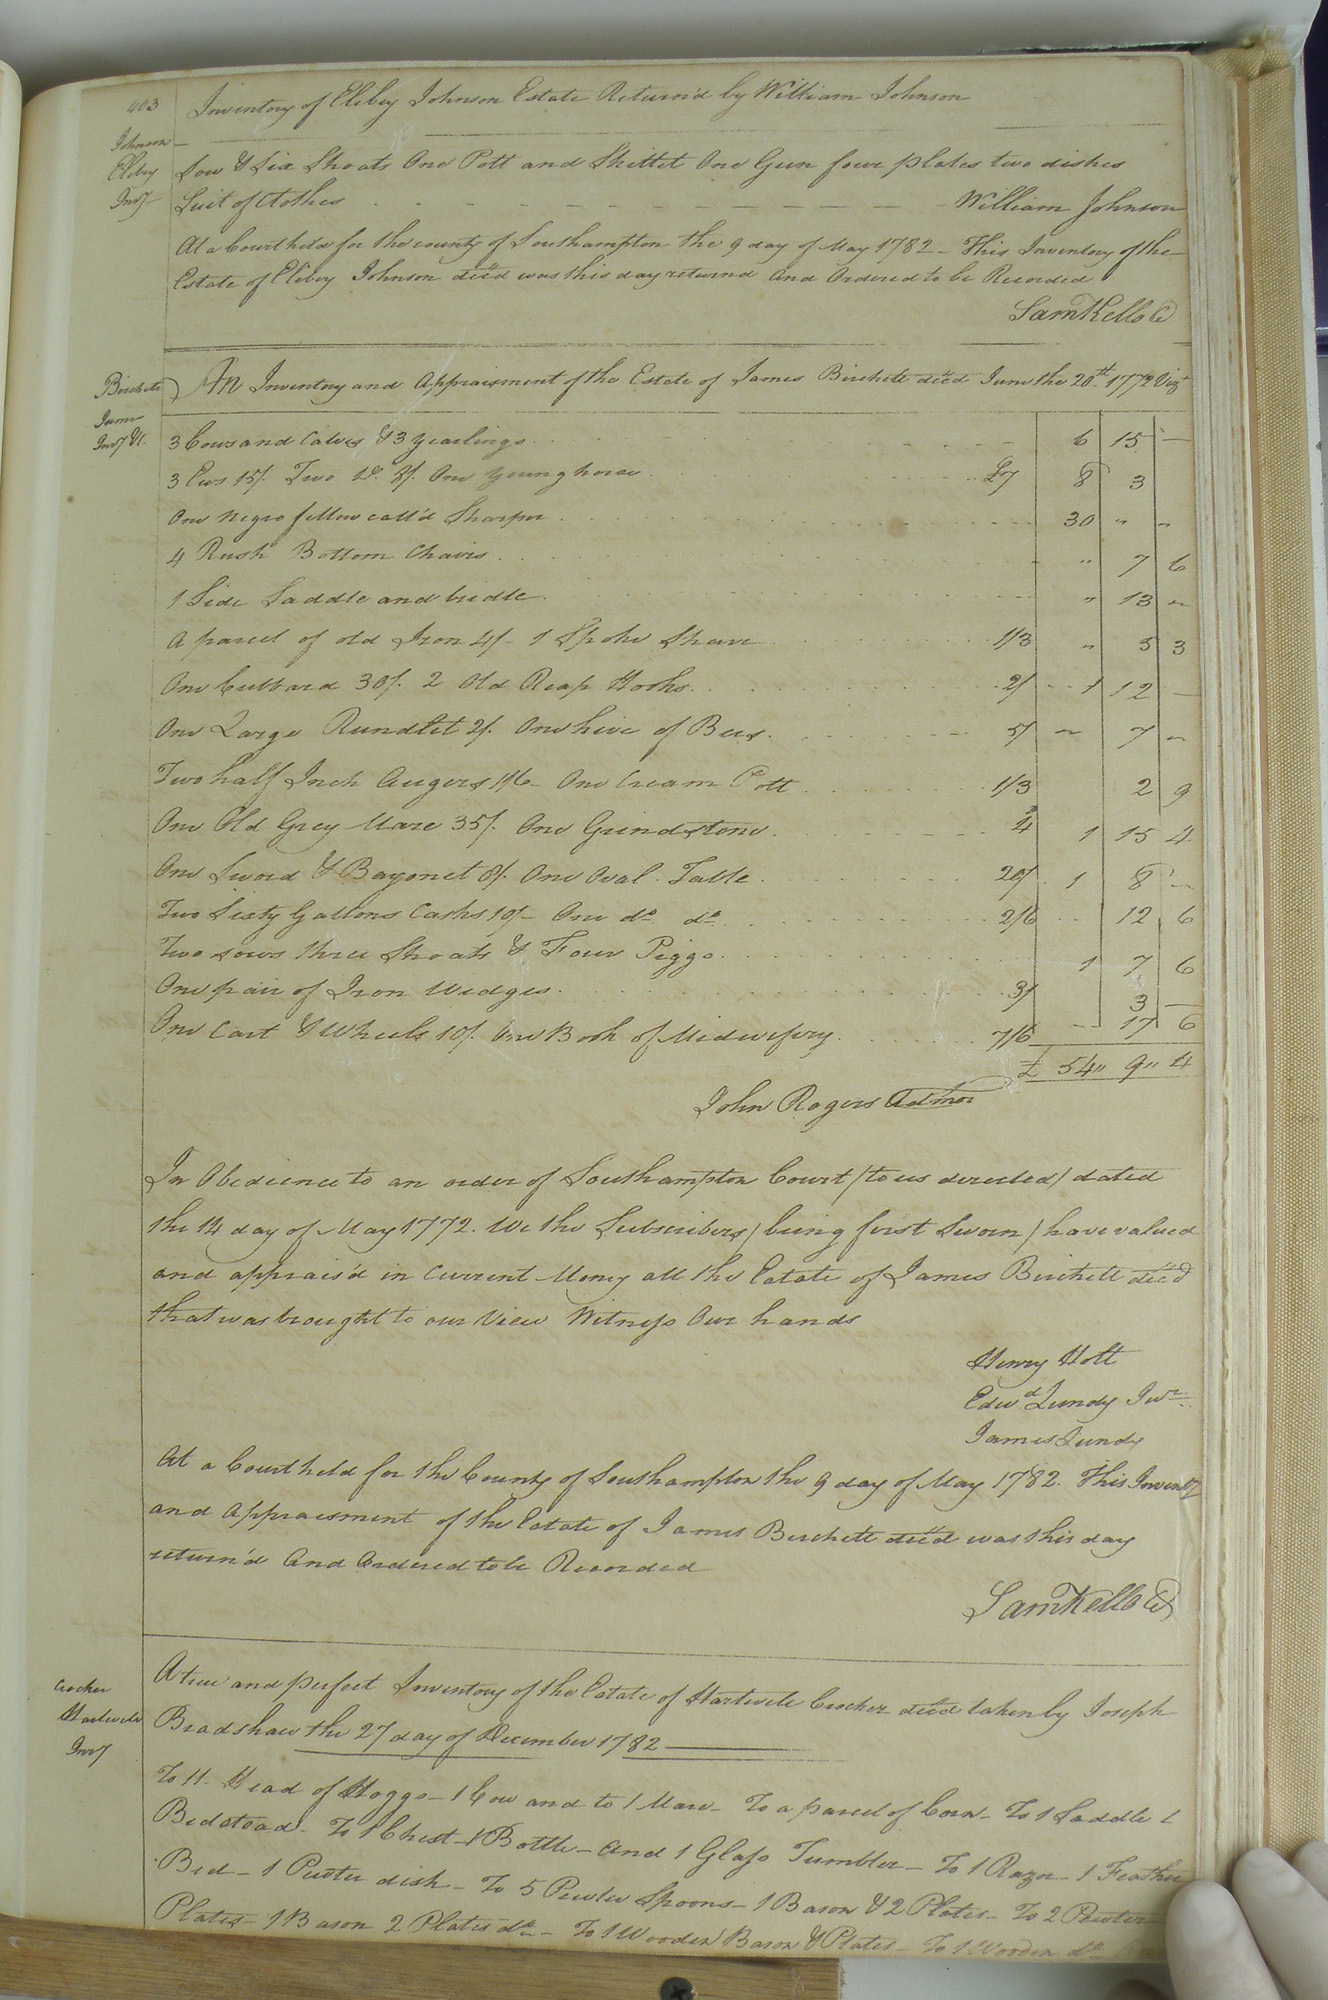 403
Inventory of Elibey Johnson Estate Returnd by William Johnson
Johnson
Elibey
Invy
Sow & Six Shoats One Pott and Skittet One Gun four plates two dishes
Suit of Clothes William Johnson
At a Court held for the county of Southampton the 9 day of May 1782 - This Inventory of the
Estate of Elibey Johnson decd was this day returnd and Ordered to be Recorded
Saml Kello Cl
Birchett
James
Invy &c.
An Inventory and Appraisment of the Estate of James Birchett decd June the 20th 1772 Vizt
3 Cows and Calves & 3 yearlings 6 15 -
3 Ews 15/. Two Do. 8/. One young horse £7 8 3
One negro fellow call'd Sharper 30 " "
4 Rush Bottom Chairs " 7 6
1 Side Saddle and bridle " 13 "
A parcel of old Iron 4/- 1 Spoke Shave 1/3 " 5 3
One Cubbard 30/. 2 Old Reap Hooks 2/ 1 12 -
One Large Rundlet 2/. One hive of Bees 5/ " 7 "
Two half Inch Augers 1/6 - One Cream Pott 1/3 2 9
One Old Grey Mare 35/. One Grindstone 4 1 15 4
One Sword & Bayonet 8/. One Oval Table 20/ 1 8 "
Two Sixty Gallons Casks 10/- One do do 2/6 12 6
Two sows three Shoats & Four Piggs 1 7 6
One pair of Iron Wedges 3/ 3 -
One Cart & Wheels 10/. One Book of Midwifery 7/6 17 6
£ 54 " 9 " 4
John Rogers Admor
In Obedience to an order of Southampton Court / to us directed / dated
the 14 day of May 1772. We the Subscribers / being first Sworn / have valued
and apprais'd in Current Money all the Estate of James Birchett decd
that was brought to our View Witness Our hands
Henry Holt
Edwd Lundy Junr
James Lundy
At a Court held for the County of Southampton the 9 day of May 1782. This Inventy
and Appraisment of the Estate of James Birchett decd was this day
return'd And Ordered to be Recorded
Saml Kello Cl
Crocker
Hartwell
Invy
A true and perfect Inventory of the Estate of Hartwell Crocker decd taken by Joseph
Bradshaw the 27 day of December 1782
To 11 Head of Hoggs - 1 Cow and to 1 Mare - To a parcel of Corn - To 1 Saddle 1
Bedstead - To 1 Chest - 1 Bottle - And 1 Glass Tumbler - To 1 Razor - 1 Feather
Bed - 1 Pewter dish - To 5 Pewter Spoons - 1 Bason & 2 Plates - To 2 Pewter
Plates - 1 Bason 2 Plates do - To 1 Wooden Bason & Plates - To 1 Wooden do